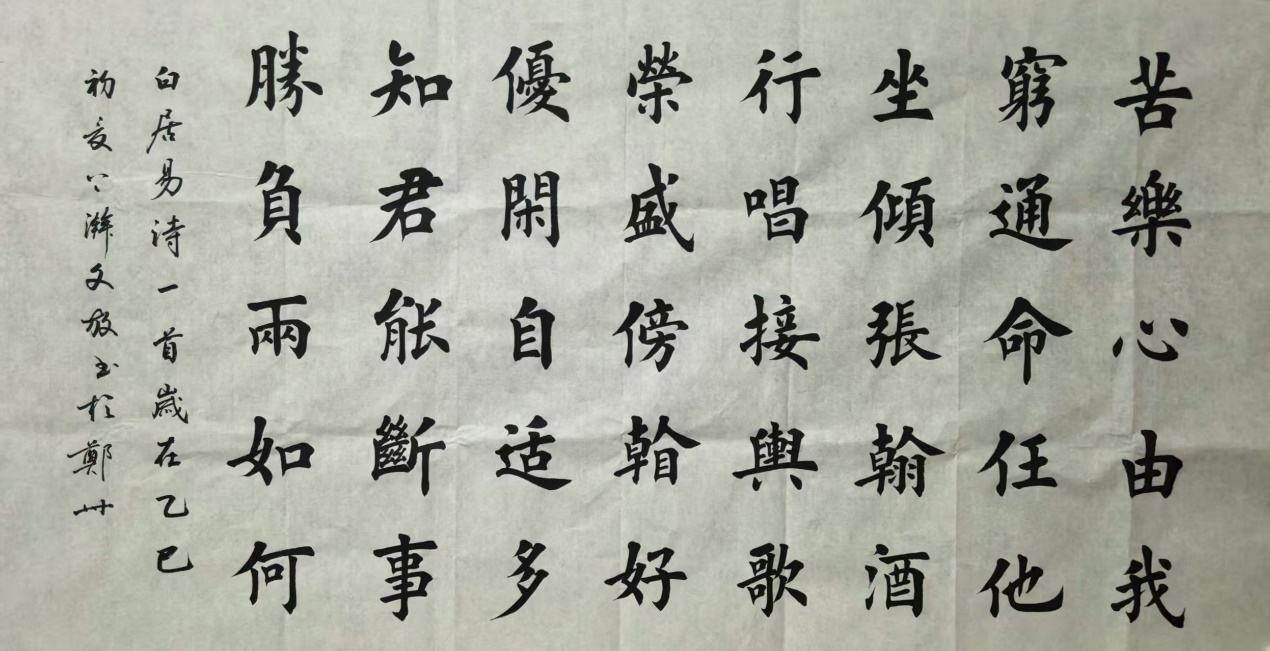 苦樂心由我
窮通命任他
坐傾張翰酒
行唱接輿歌
榮盛傍看好
優閑自适多
知君能斷事
勝負兩如何
白居易诗一首歲在乙巳
初夏上澣文放书於鄭州